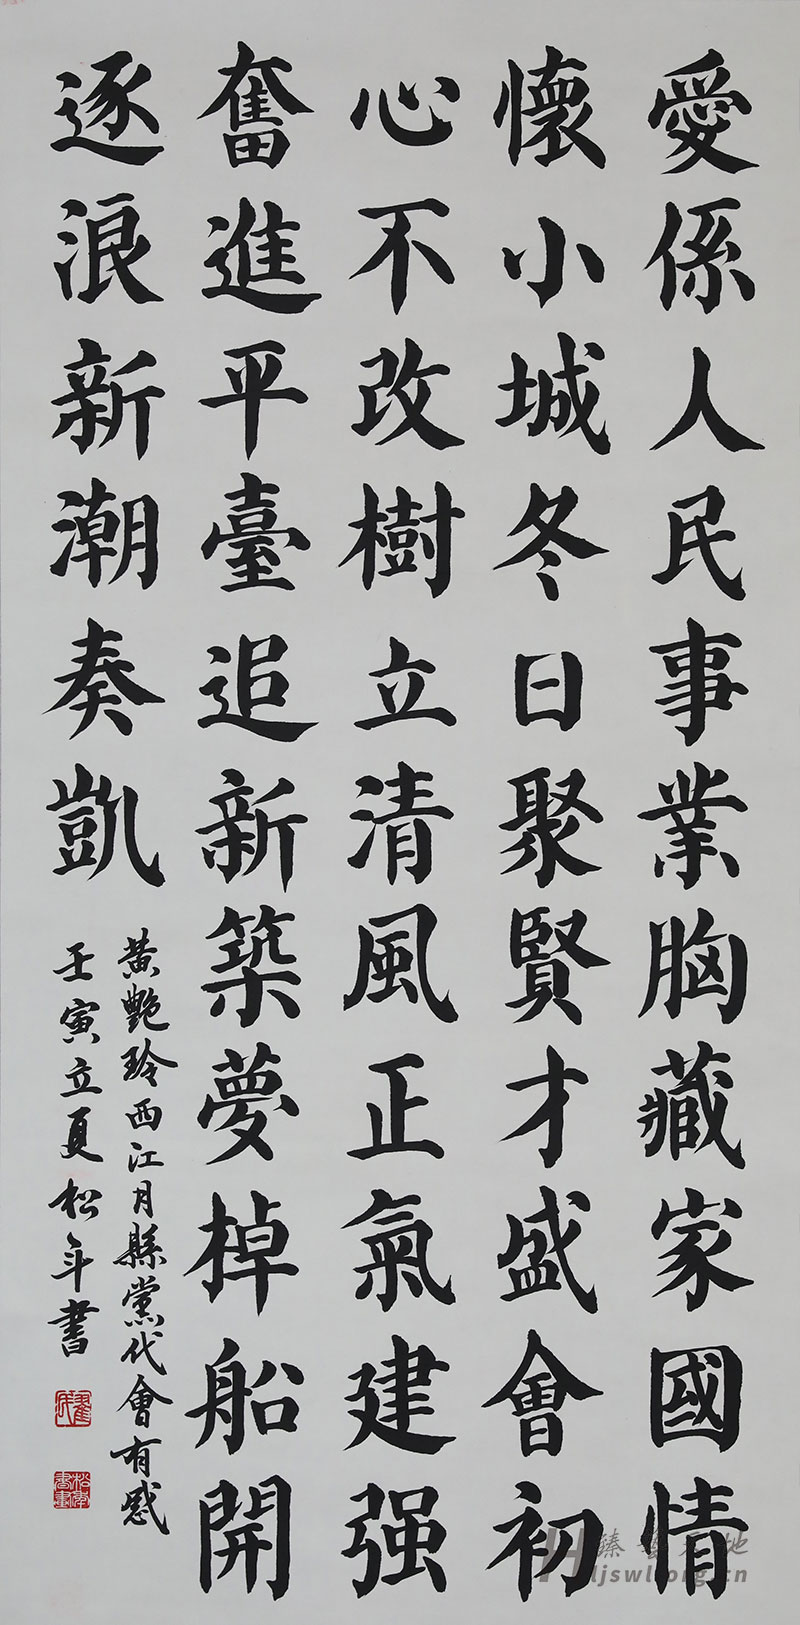 愛係人民事業胸藏家國情
懷小城冬日聚賢才盛會初
心不改樹立清風正氣建强
奮進平臺追新築夢棹船開
逐浪新潮奏凱
黄艷玲西江月縣黨代會有感
壬寅立夏松年書
臻藝天地
ljswl.org.cn